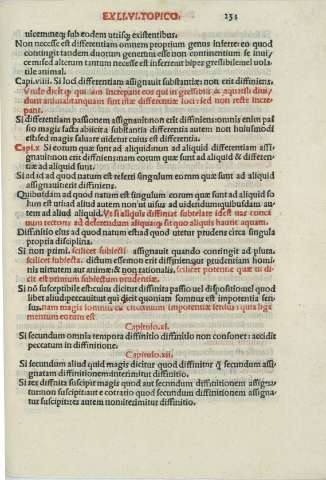 EX LI.VI.TOPICO.
uicem neq; sub eodem utrisq; existentibus.
Non necesse est differentiam omnem proprium genus inferre eo quod
contingit tandem duorum generum esse non continentium se inui
cem sed alterum tantum necesse est inferre ut biper gressibile mel uo
latile animal.
Capi.viiii. Si loc differentiam assignauit substantiæ: non erit diffiniens.
dum animal tanquam sint istæ differentiæ loci: sed non recte incre
pant.
Si differentiam passionem assignauit: non erit diffiniens: omnis enim pas
sio magis facta abiicit a substantia differentia autem non huiusmodi
est: sed magis saluare uidetur cuius est differentia.
Capi.x Si eorum quæ sunt ad aliquid non ad aliquid differentiam assi
gnauit non erit diffiniens nam eorum quæ sunt ad aliquid & differen
tiæ ad aliquid sunt.
Si ad id ad quod natum est referri singulum eorum quæ sunt ad aliquid
assignauit erit diffiniens.
Quibusdam ad quod natum est singulum eorum quæ sunt ad aliquid so
lum est uti ad aliud autem non ut uisus ad uidendum quibusdam au
tem ad aliud aliquid.
Diffinitio eius ad quod natum est ad quod utitur prudens circa singula
propria disciplina.
Si non primi. scilicet subiecti assignauit quando contingit ad plura.
scilicet subiecta. dictum essе non erit diffiniens ut prudentiam homi
nis uirtutem aut animæ: & non rationalis. scilicet potentiæ quæ ut di
cit est primum subiectum prudentiæ.
Si nõ susceptibile est cuius dicitur diffinita passio uel dispositio el quod
libet aliud: peccauit ut qui dicit quoniam somnus est impotentia sen
sus.
mentum eorum est
Capitulo.xi.
Si secundum omnia tempora diffinitio diffinito non consonet: accidit
peccatum in diffinitione.
Capitulo.xii.
Si secundum aliud quid magis dicitur quod diffinitur & secundum assi
gnatam diffinitionem interimitur diffinitio.
Si res diffinita suscipit magis quod aut secundum diffinitionem assigna
tur non suscipit aut e contrario quod secundum diffinitionem assigna
tur suscipit res autem non interimitur diffinitio.